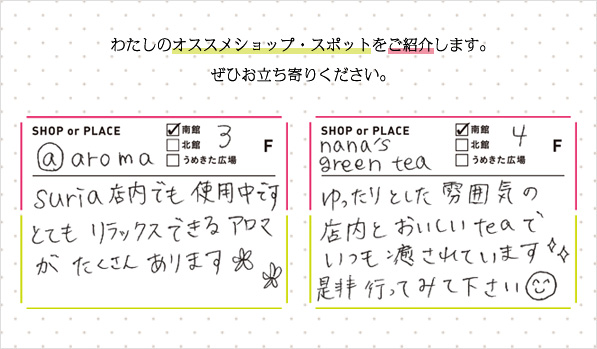 わたしのオススメショップ・スポットをご紹介します。
ぜひお立ち寄りください。
SHOP or PLACE
ⓐ aroma
☑南館
☐北館
☐うめきた広場
3 F
suria店内でも使用中です
とても リラックスできる アロマ
が たくさん あります
SHOP or PLACE
nana's
green tea
☑南館
☐北館
☐うめきた広場
4 F
ゆったりとした 雰囲気の
店内と おいしい teaで
いつも 癒されています
是非 行ってみて下さい